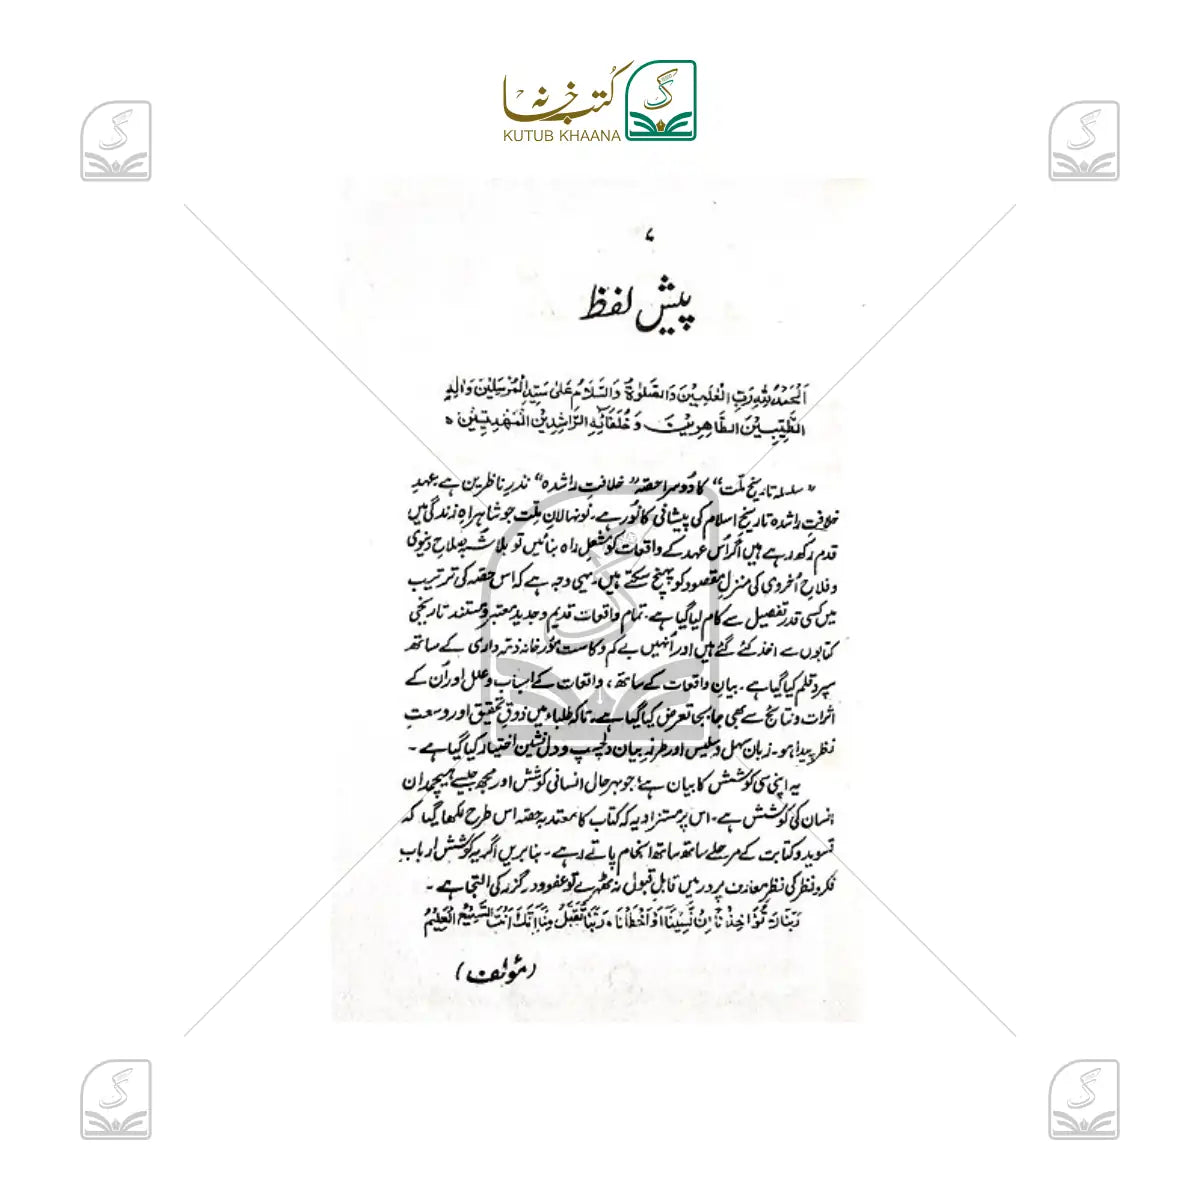 کتب خانہ
KUTUB KHAANA
۷
پیش لفظ
اَلْحَمْدُ لِلّٰهِ رَبِّ الْعٰلَمِیْنَ وَالصَّلٰوةُ وَالسَّلَامُ عَلٰی سَیِّدِ الْمُرْسَلِیْنَ وَاٰلِهِ
الطَّیِّبِیْنَ الطَّاهِرِیْنَ وَخُلَفَائِهِ الرَّاشِدِیْنَ الْمَهْدِیِّیْنَ ہ
"سلسلہ تاریخ ملت" کا دُوسرا حصّہ "خلافتِ راشدہ" نذرِ ناظرین ہے۔ عہدِ
خلافتِ راشدہ تاریخِ اسلام کی پیشانی کا نُور ہے۔ نونہالانِ ملّت جو شاہراہِ زندگی میں
قدم رکھ رہے ہیں اگر اس عہد کے واقعات کو مشعلِ راہ بنائیں تو بلاشبہ صلاحِ دنیوی
و فلاحِ اُخروی کی منزلِ مقصود کو پہنچ سکتے ہیں۔ یہی وجہ ہے کہ اس حصّہ کی ترتیب
میں کسی قدر تفصیل سے کام لیا گیا ہے۔ تمام واقعات قدیم و جدید معتبر و مستند تاریخی
کتابوں سے اخذ کئے گئے ہیں اور اُنہیں بے کم و کاست مؤرخانہ ذمّہ داری کے ساتھ
سپردِ قلم کیا گیا ہے۔ بیانِ واقعات کے ساتھ، واقعات کے اسباب و علل اور اُن کے
اثرات و نتائج سے بھی جا بجا تعرض کیا گیا ہے۔ تاکہ طلباء میں ذوقِ تحقیق اور وسعتِ
نظر پیدا ہو۔ زبان سہل و سلیس اور طرزِ بیان دلچسپ و دل نشین اختیار کیا گیا ہے۔
یہ اپنی سی کوشش کا بیان ہے؛ جو بہرحال انسانی کوشش اور مجھ جیسے ہیچمدان
انسان کی کوشش ہے۔ اس پر مستزاد یہ کہ کتاب کا معتدبہ حصّہ اس طرح لکھا گیا کہ
تسوید و کتابت کے مرحلے ساتھ ساتھ انجام پاتے رہے۔ بنا بریں اگر یہ کوشش ارباب
فکر و نظر کی نظرِ معارف پرور میں قابلِ قبول نہ ٹھہرے تو عفو و درگزر کی التجا ہے۔
رَبَّنَا لَا تُؤَاخِذْنَا اِنْ نَّسِیْنَا اَوْ اَخْطَاْنَا ہ رَبَّنَا تَقَبَّلْ مِنَّا اِنَّكَ اَنْتَ السَّمِیْعُ الْعَلِیْمُ
(مؤلف)